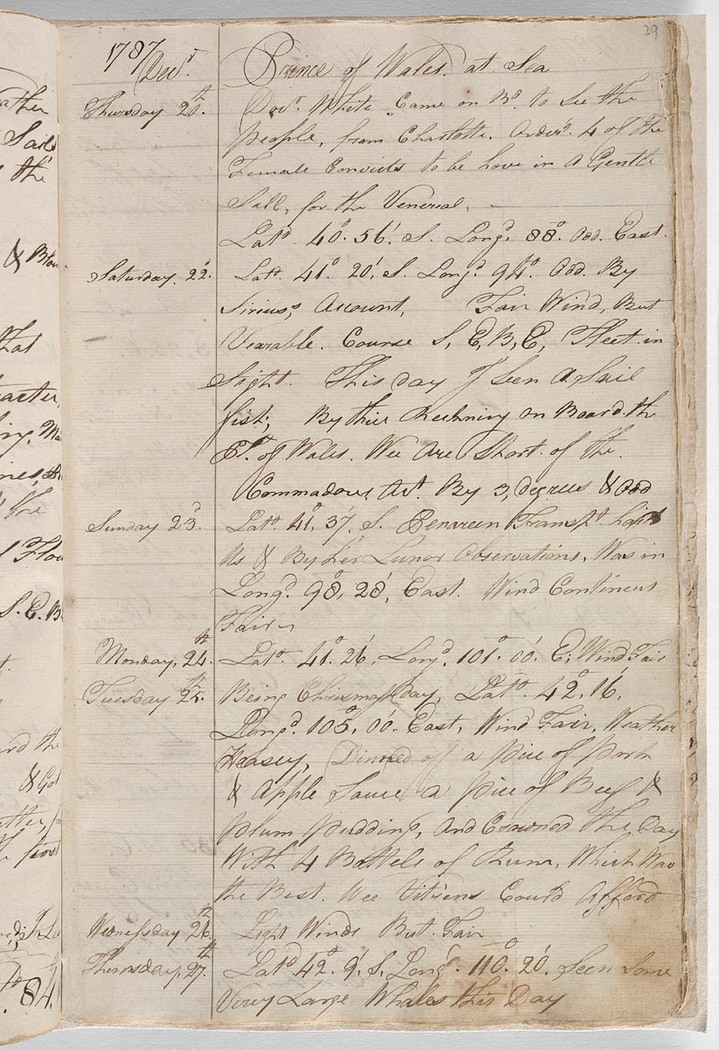 29
1787 Decr. Prince of Wales. at Sea
Thursday 20th Docr. White Came on Bd. to See the
People, from Charlotte. Order'd. 4 of the
Female Convicts to be hove in a Gentle
Sall, for the Veneral. –
Latd. 40°. 56'. S. Longd. 88°. Odd. East.
Saturday. 22d. Latd. 41°. 20'. S. Longd. 94°. Odd. By
Sirius's Account, Fair Wind, But
Vearable. Course S, E, B, E, Fleet in
Sight. This day I Seen A Sail
fish; By thier Reckning on Board. the
Ps. of Wales. Wee Are Short. of the.
Commadours Act. By 3, degrees & Odd
Sunday 23d. Latd. 41°, 37'. S. Transpt.
Us & By her Lunor Observations, Was in
Longd. 98°, 28', East. Wind Continues
Fair
Monday, 24th. Latd. 41°. 26'. Longd. 101°. 00. E; Wind Fair
Tuesday 25th. Being Chrismassday, Latd. 42°. 16'.
Longd. 105°, 00. East, Wind Fair, Weather
Heasey, Dinned off a Pice of Pork
& Apple Sauce a Pice of Beef &
plum pudding, And Crowned the, Day
With 4 Bottels of Rum, Which Was
the Best. Wee Vitirens Could Afford
Wednesday 26th. Light Winds But Fair
Thursday, 27th. Latd. 42°. 9'. S. Longd. 110°. 20'. Seen Some
Verry Large Whales this Day